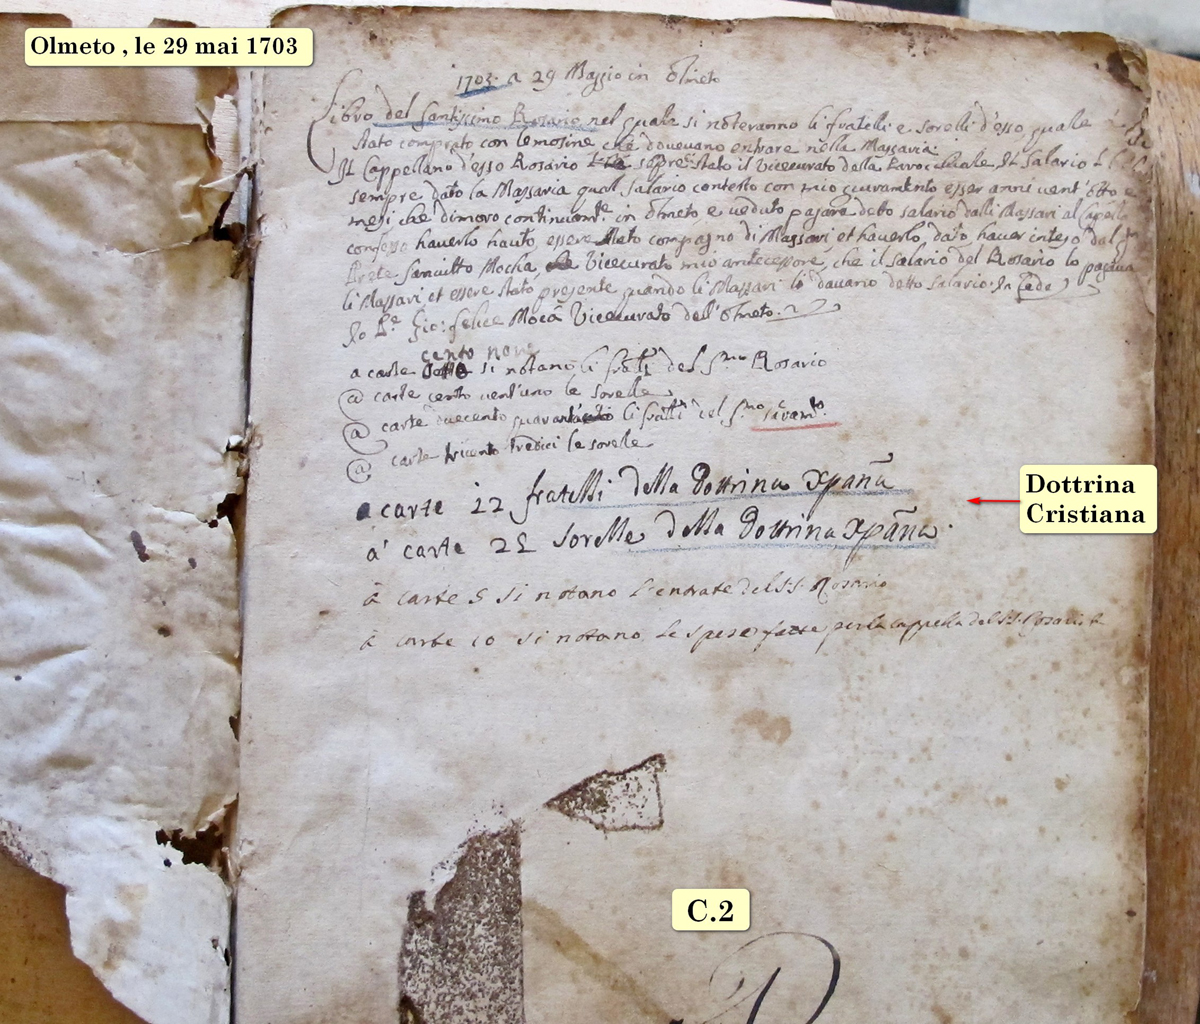 Olmeto , le 29 mai 1703
1703. a 29 Maggio in Olmeto
Libro del Santissimo Rosario nel quale si noteranno li fratelli e sorelli d'esso, quale è
stato comprato con lemosine che doueuano entrare nella Massaria
Il Cappellano d'esso Rosario sepre è stato il Vicecurato della Parocchiale, Il Salario l'
sempre dato la Massaria qual salario contesto con mio giuramento esser anni uent'otto e
mesi che dimoro continuamte. in Olmeto e ueduto pagare detto salario dalli Massari al Capella
confesso hauerlo hauto, essere stato compagno di Massari et hauerlo dato hauer inteso dal
Prete Mocha, Vicecurato mio antecessore, che il salario del Rosario lo pagaua
li Massari et essere stato presente quando li Massari lo dauano detto salario. In fede
Io Pe. Gio: felice Moca Vicecurato dell'Olmeto.
cento nove
a carte si notano li frãti del S.mo Rosario
@ carte cento uent'uno le sorelle
@ carte duecento li fratti del S.mo Sacramto.
@ carte tricento tredici le sorelle
a carte 12 fratelli della Dottrina Xpãna
a' carte 25 sorelle della Dottrina Xpãna.
à carte 5 si notano l'entrate del S.S. Rosario
à carte 10 si notano le spese fatte per la cappella del S.S. Rosario
Dottrina
Cristiana
C.2